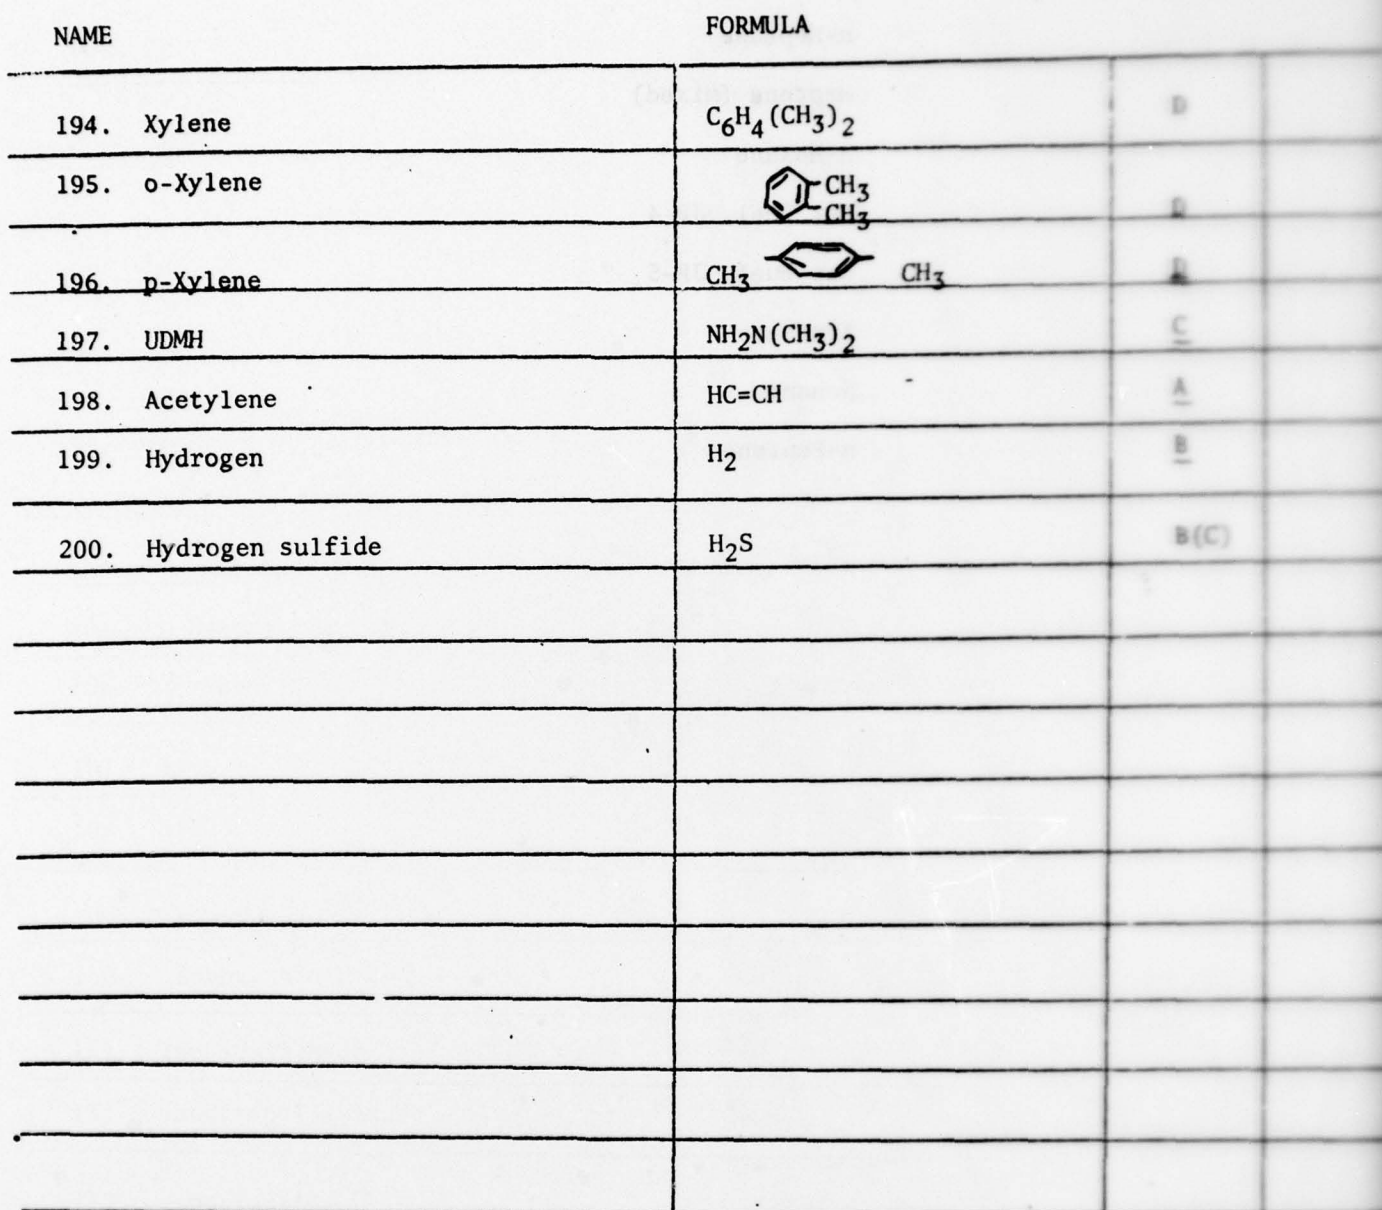 NAME FORMULA
194. Xylene C6H4(CH3)2 D
195. o-Xylene CH3
CH3 D
196. p-Xylene CH3 CH3
197. UDMH NH2N(CH3)2 C
198. Acetylene HC=CH A
199. Hydrogen H2 B
200. Hydrogen sulfide H2S B(C)